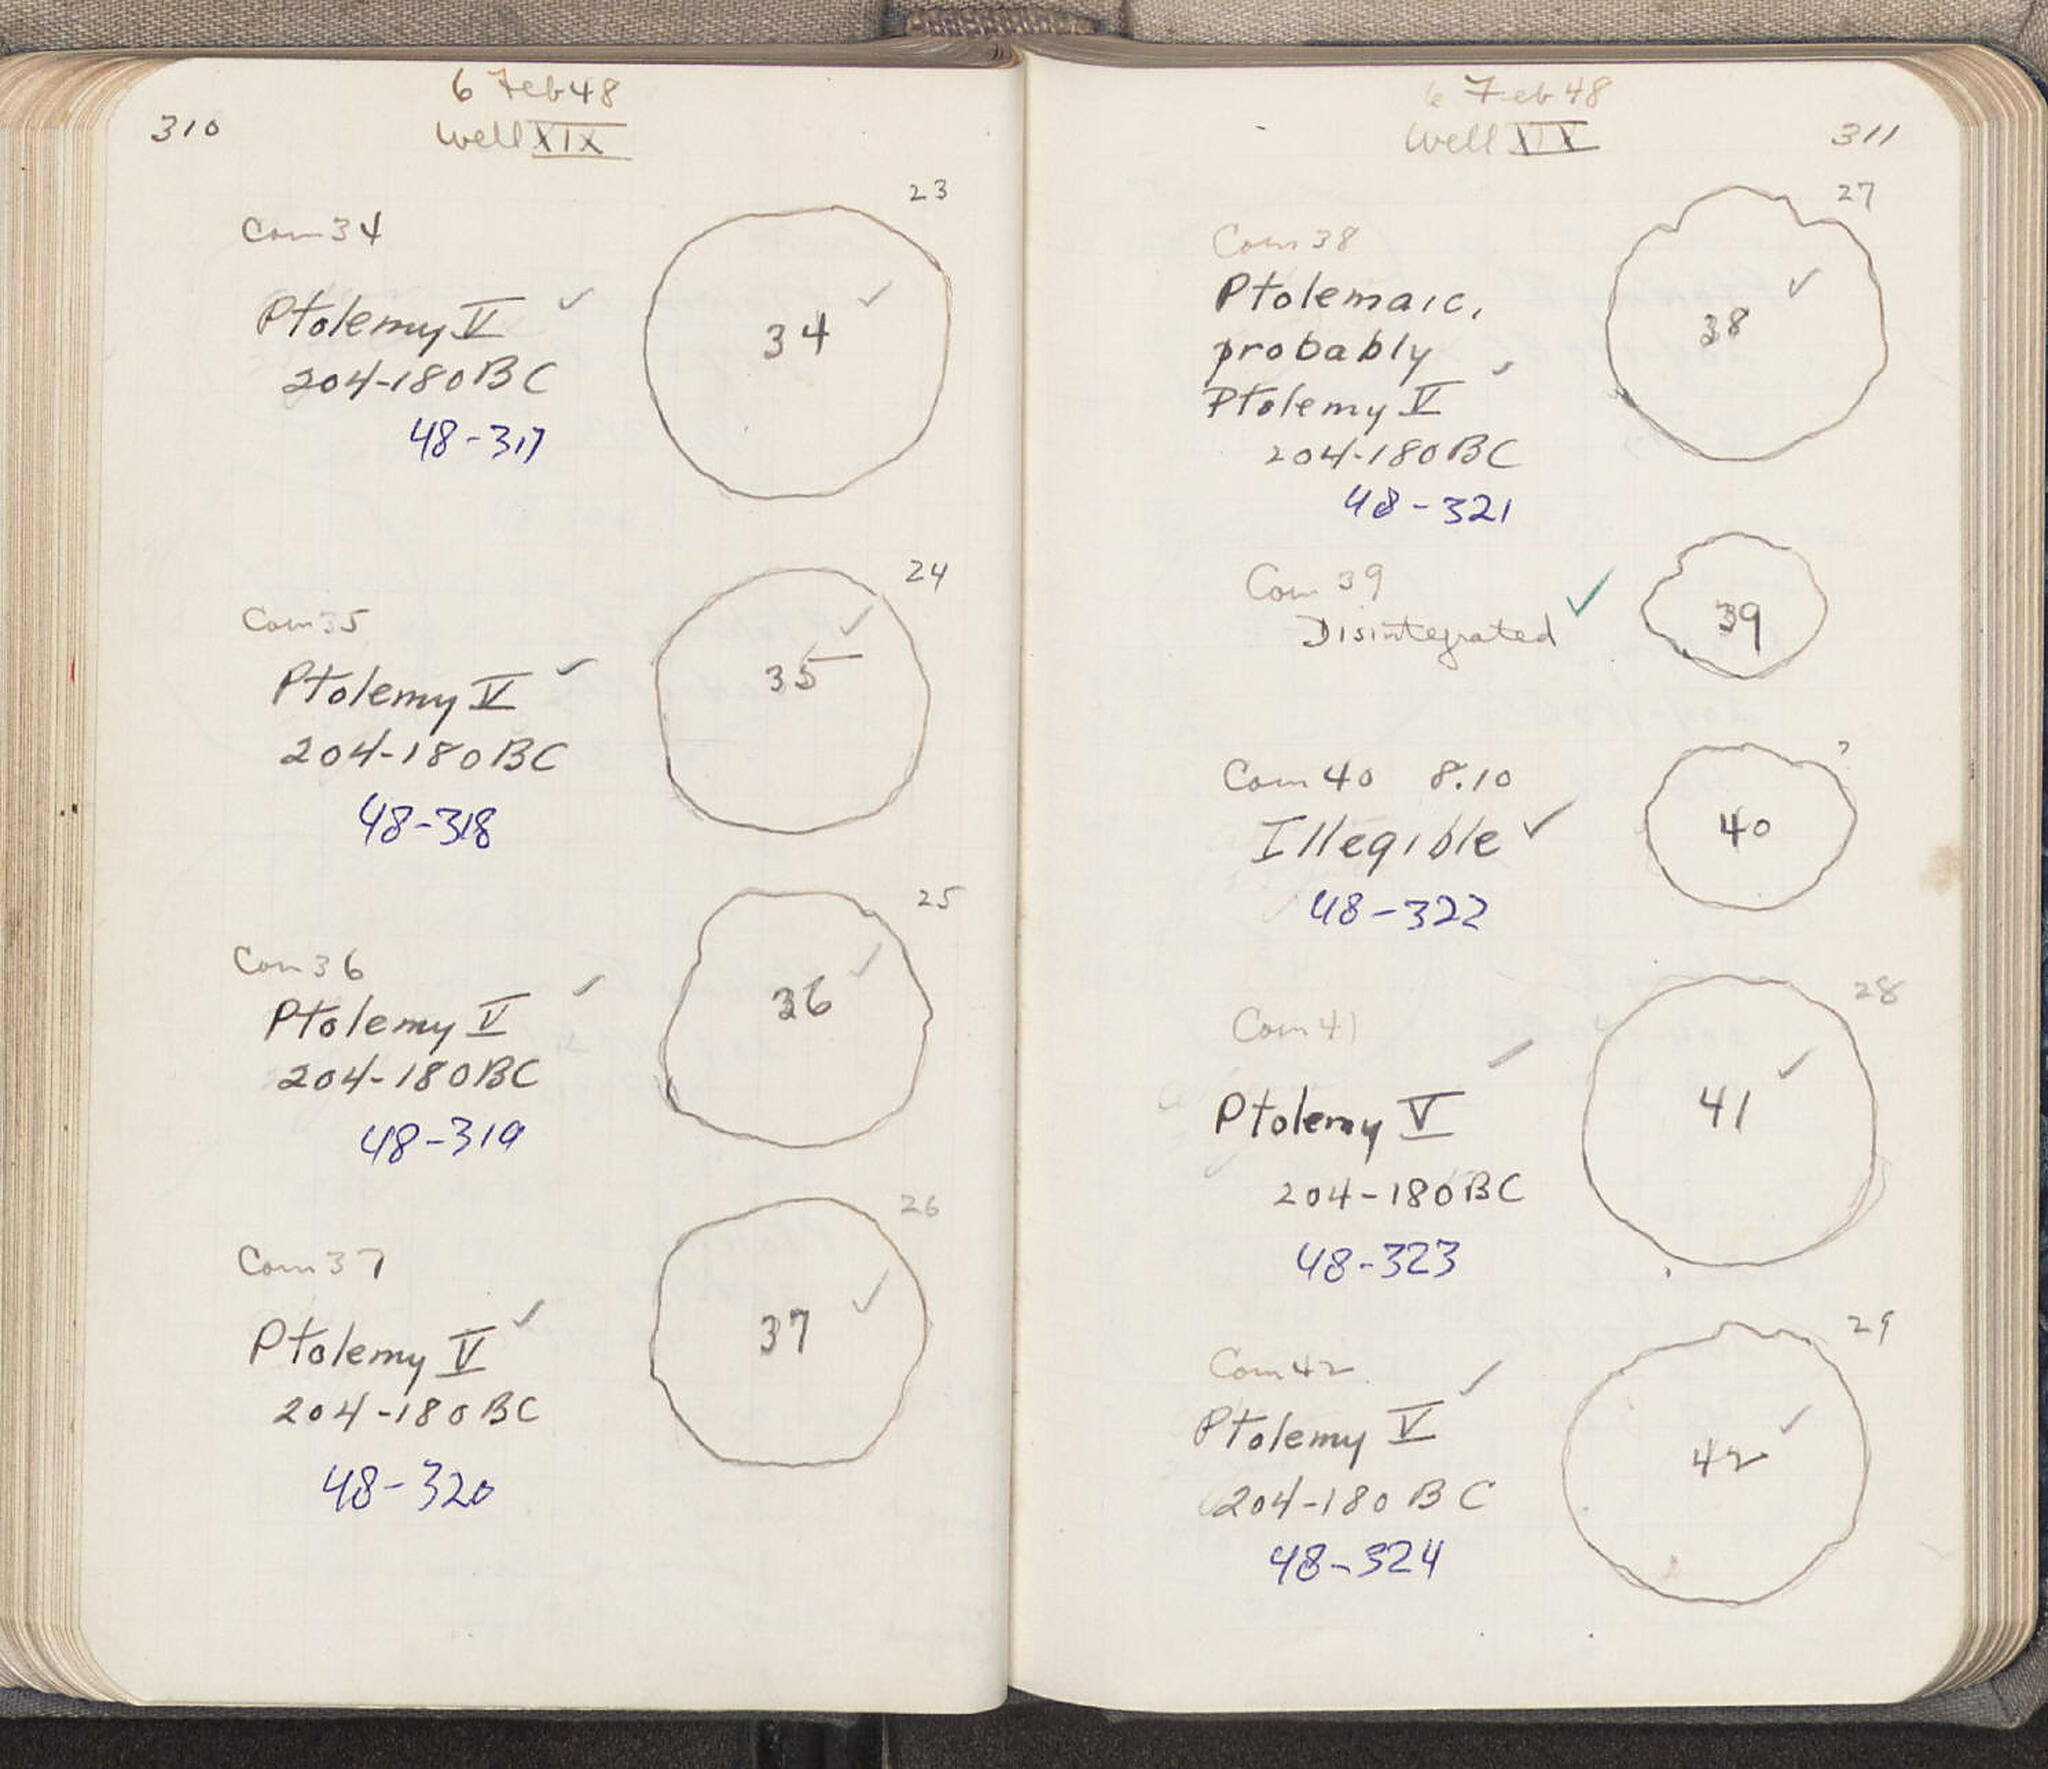 310
6 Feb 48
Well XIX
23
Coin 34
34
Ptolemy V
204-180 BC
48-317
24
Coin 35
35
Ptolemy V
204-180 BC
48-318
25
Coin 36
36
Ptolemy V
204-180 BC
48-319
26
Coin 37
37
Ptolemy V
204-180 BC
48-320
6 Feb 48
Well XIX
311
27
Coin 38
38
Ptolemaic,
probably
Ptolemy V
204-180 BC
48-321
Coin 39
39
Disintegrated
?
Coin 40 8.10
40
Illegible
48-322
28
Coin 41
41
Ptolemy V
204-180 BC
48-323
29
Coin 42
42
Ptolemy V
204-180 BC
48-324